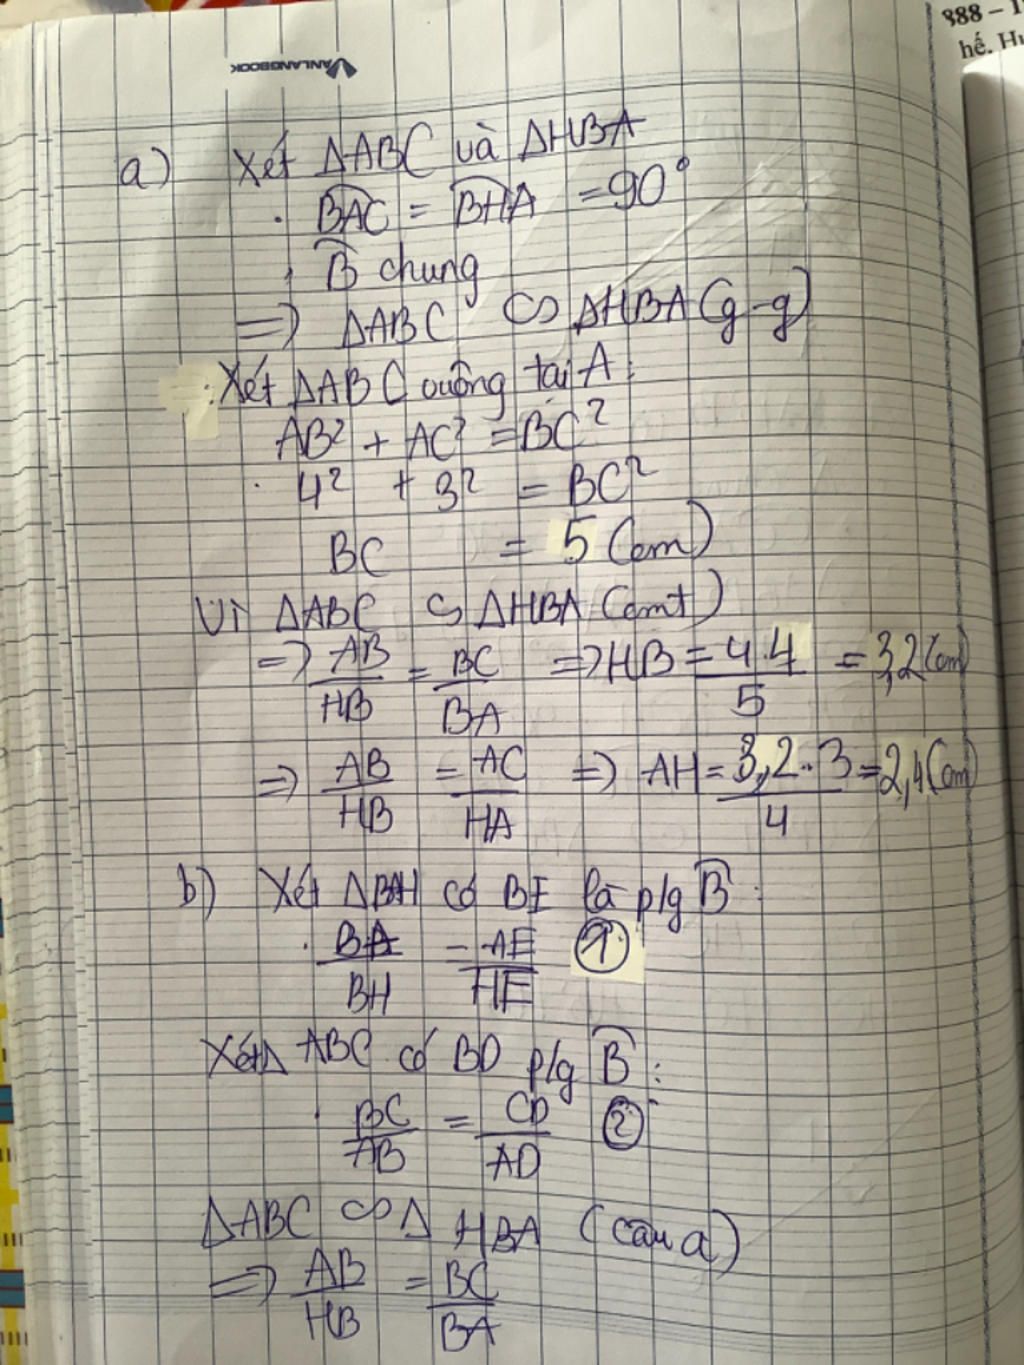 888 – 1
hế. Hu
VANLANGBOOK
a) Xét ΔABC và ΔHBA
. BAC = BHA = 90°
. B chung
=> ΔABC ∽ ΔHBA (g-g)
. Xét ΔABC vuông tại A:
AB² + AC² = BC²
. 4² + 3² = BC²
BC = 5 (cm)
Vì ΔABC ∽ ΔHBA (cmt)
=> AB/HB = BC/BA => HB = 4.4/5 = 3,2 (cm)
=> AB/HB = AC/HA => AH = 3,2.3/4 = 2,4 (cm)
b) Xét ΔBAH có BE là p/g B:
. BA/BH = AE/HE ①
Xét Δ ABC có BD p/g B:
. BC/AB = CD/AD ②
ΔABC ∽ Δ HBA (câu a)
=> AB/HB = BC/BA